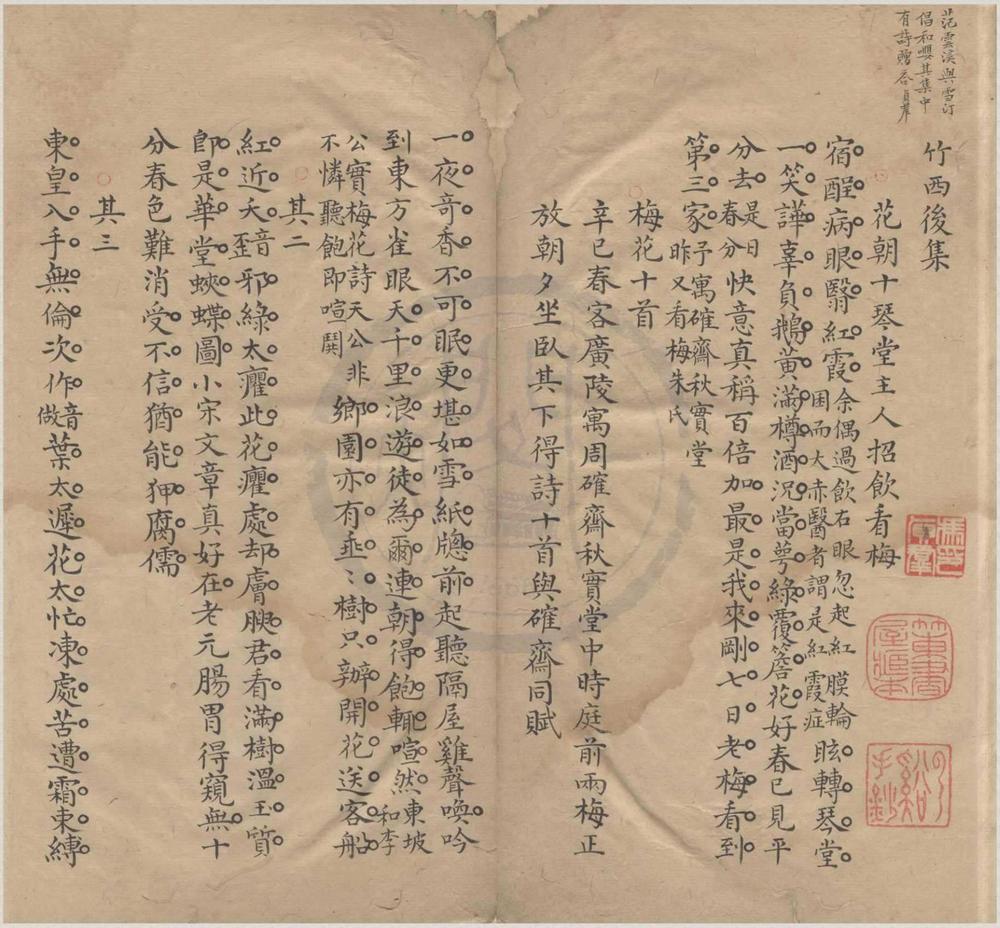 范雲溪與雪汀
倡和嚶其集中
有詩贈答
竹西後集
花朝十琴堂主人招飲看梅
宿酲病眼翳紅霞余偶過飲右眼忽起紅膜輪困而大赤醫者謂是紅霞症眩轉琴堂
一笑譁辜負鵝黃滿樽酒況當萼綠覆簷花好春已見平
分去是日春分快意真稱百倍加最是我來剛七日老梅看到
第三家予寓確齋秋實堂昨又看梅朱氏
梅花十首
辛巳春客廣陵寓周確齋秋實堂中時庭前兩梅正
放朝夕坐臥其下得詩十首與確齋同賦
一夜奇香不可眠更堪如雪紙牕前起聽隔屋雞聲喚吟
到東方雀眼天千里浪遊徒為爾連朝得飽輒喧然東坡和李
公實梅花詩天公不憐聽飽即喧鬨非鄉園亦有垂〻樹只辦開花送客船
其二
紅近夭音歪邪綠太癯此花癯處却膚腴君看滿樹溫玉質
卽是華堂蛺蝶圖小宋文章真好在老元腸胃得窺無十
分春色難消受不信猶能狎腐儒
其三
東皇入手無倫次作音做葉太遲花太忙凍處苦遭霜束縛